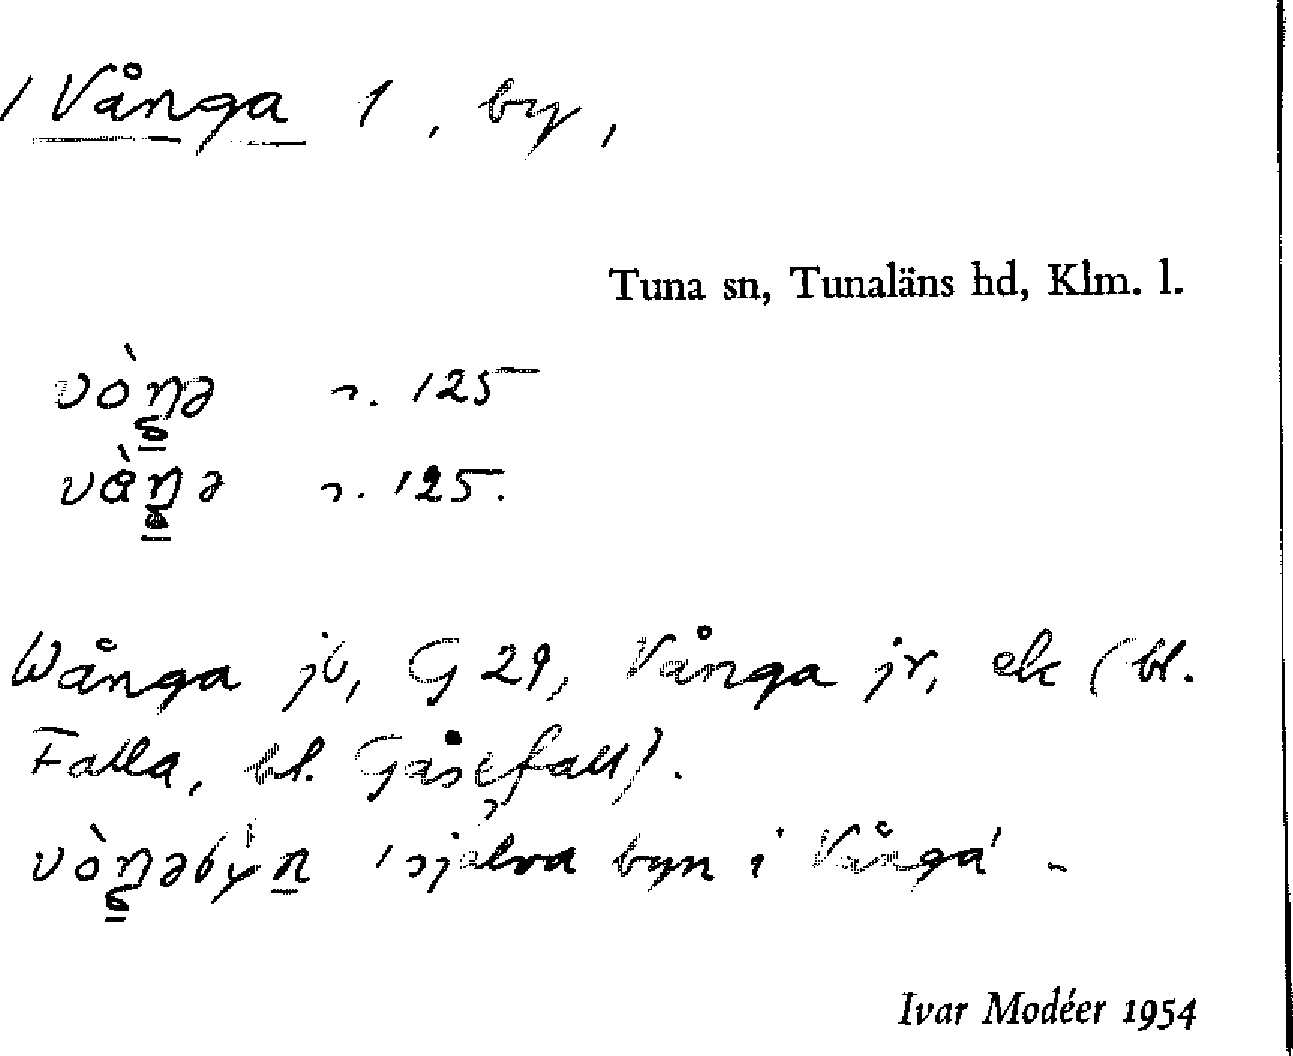 / Vånga 1, by,
Tuna sn, Tunaläns hd, Klm. l.
vòŋə s. 125
vàŋə s. 125.
Wånga jb, G 29, Vånga jr, ek (bl.
Falla, bl. Gåsefall).
vòŋəbýn 'själva byn i Vånga'
Ivar Modéer 1954